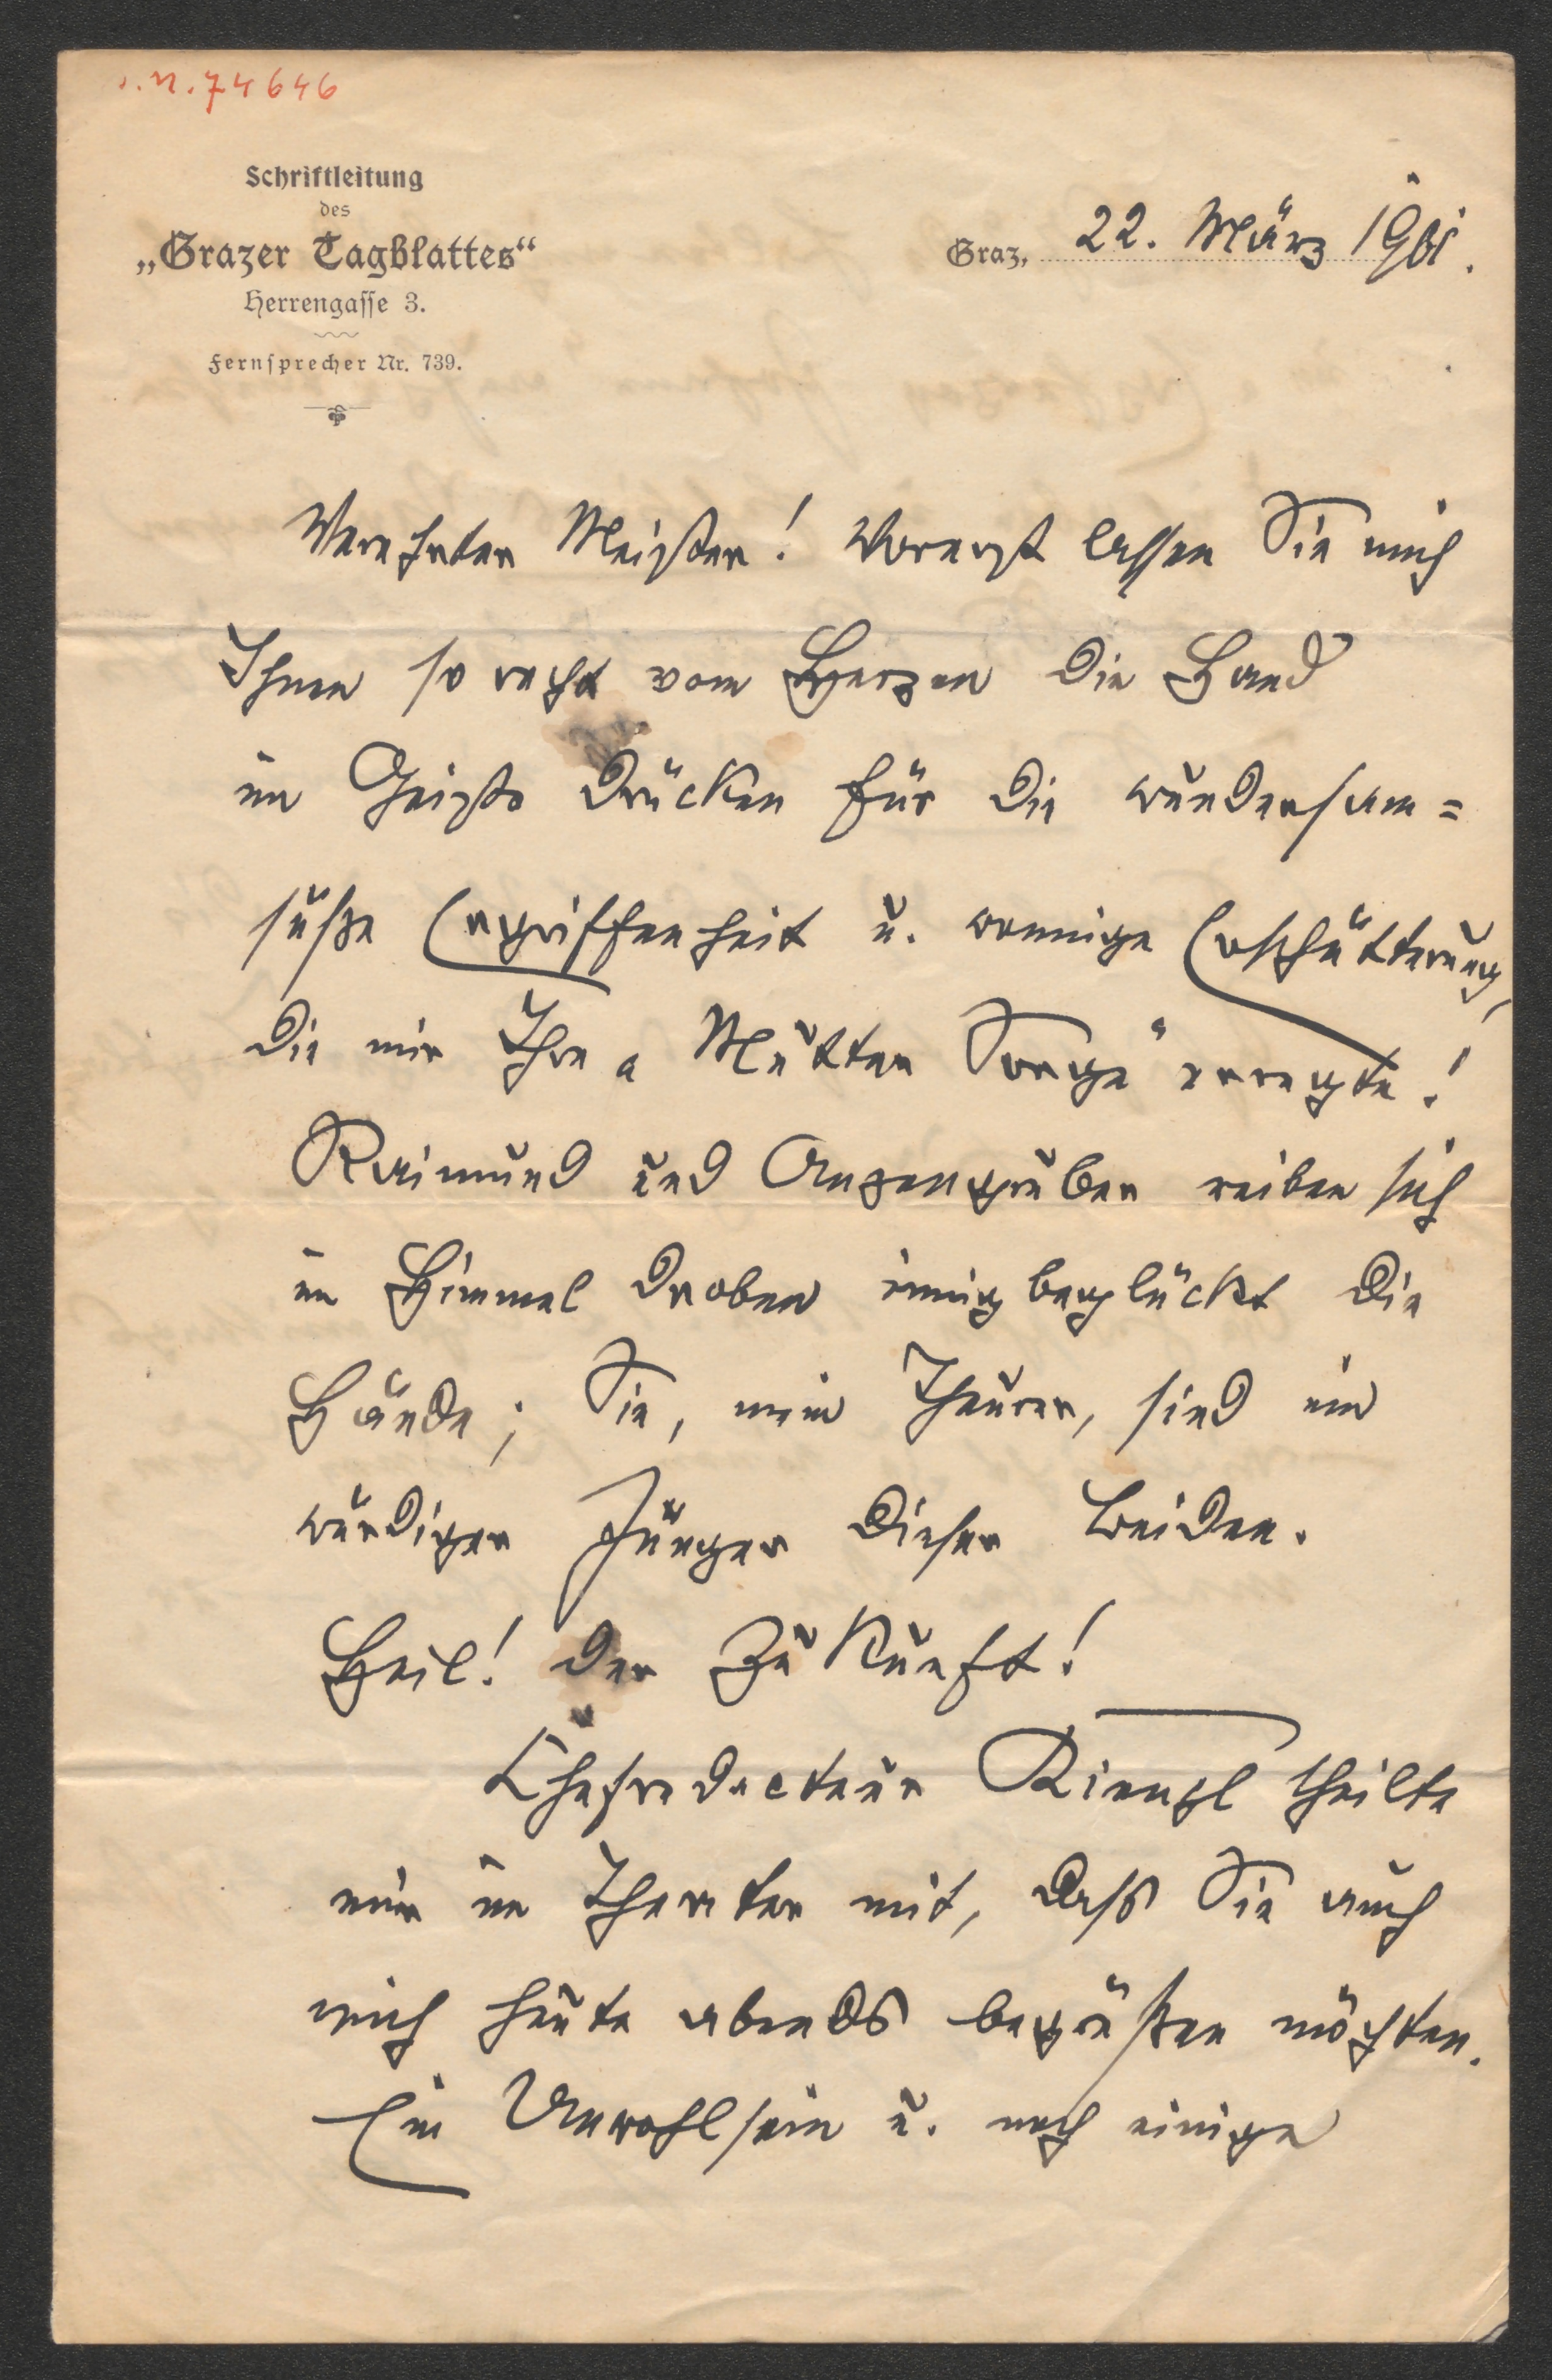 I.N. 74646
Schriftleitung
des
„Grazer Tagblattes“
Herrengasse 3.
Fernsprecher Nr. 739.
Graz, 22. März 1901.
Verehrter Meister! Vorerst lassen Sie mich
Ihnen so recht vom Herzen die Hand
im Geiste drücken für die wundersam=
süße Ergriffenheit u. wonnige Erschütterung,
die mir Ihre „Mutter Sorge“ erregte!
Raimund und Anzengruber reiben sich
im Himmel droben innig beglückt die
Hände; Sie, mein Theurer, sind ein
würdiger Jünger dieser Beiden.
Heil! der Zukunft!
Chefredacteur Kienzl theilte
mir im Theater mit, daß Sie auch
mich heute abends begrüßen möchten.
Ein Unwohlsein u. noch einige